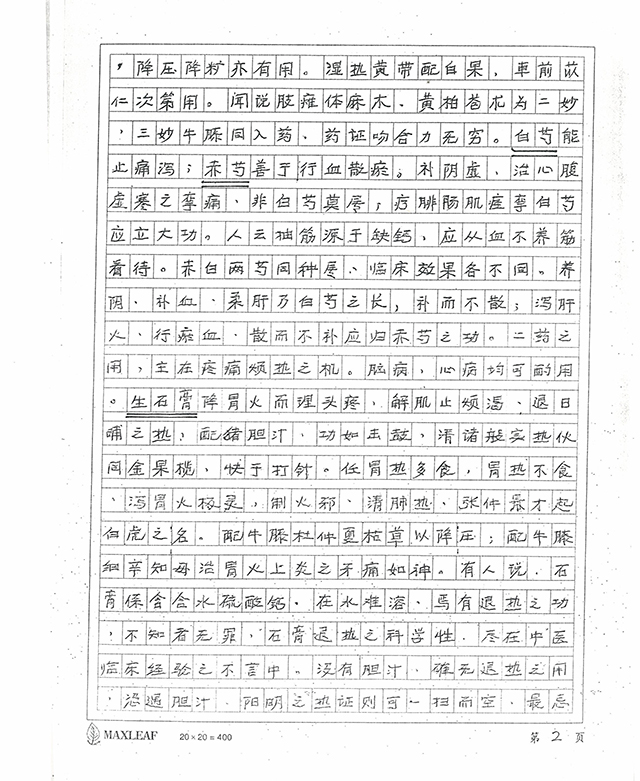 ，降压降粘亦有用。湿热黄带配白果，车前苡
仁次第用。闻说肢痿体麻木、黄柏苍朮为二妙
，三妙牛膝同入药、药证吻合力无穷。白芍能
止痛泻；赤芍善于行血散瘀。补阴虚、治心腹
虚寒之挛痛、非白芍莫属；疗腓肠肌痉挛白芍
应立大功。人云抽筋源于缺钙、应从血不养筋
看待。赤白两芍同种属、临床效果各不同。养
阴、补血、柔肝乃白芍之长，补而不散；泻肝
火、行瘀血、散而不补应归赤芍之功。二药之
用，主在疼痛烦热之机。脑病，心病均可酌用
。生石膏降胃火而理头疼，解肌止烦渴、退日
晡之热；配猪胆汁、功如击鼓，清诸般实热伙
同金果榄、快于打针。任胃热多食，胃热不食
、泻胃火极灵，制火邪、清肺热、张仲景才起
白虎之名。配牛膝杜仲夏枯草以降压；配牛膝
细辛知母治胃火上炎之牙痛如神。有人说．石
膏係含合水硫酸钙．在水难溶、焉有退热之功
，不知者无罪，石膏退热之科学性．尽在中医
临床经验之不言中。没有胆汁、确无退热之用
，遇胆汁．阳明之热证则可一扫而空．最忌
MAXLEAF 20×20=400 第 2 页